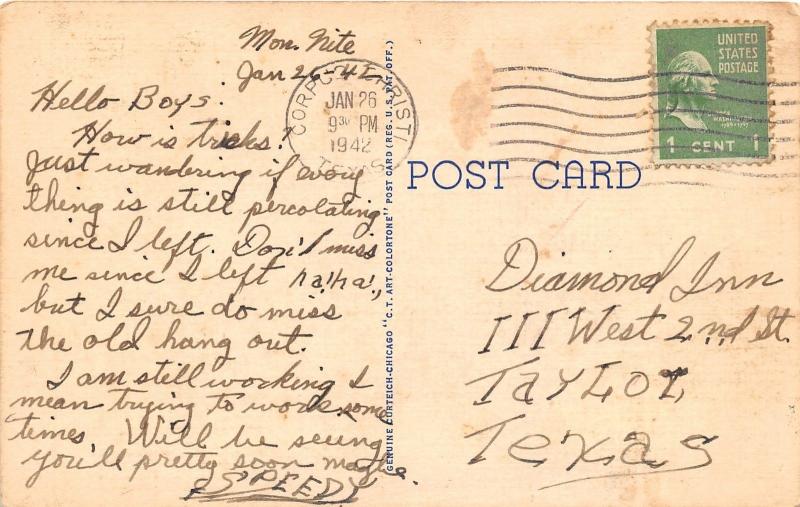 Mon. Nite
Jan 26-42
Hello Boys:
How is tricks?
Just wandering if every
thing is still percolating
since I left. Don't miss
me since I left ha!ha!,
but I sure do miss
the old hang out.
I am still working I
mean trying to work some
times. Will be seeing
you'll pretty soon maybe.
SPEEDY
GENUINE CURTEICH-CHICAGO "C.T. ART-COLORTONE" POST CARD (REG. U.S. PAT. OFF.)
CORPUS CHRISTI
JAN 26
9 30 PM
1942
TEXAS
UNITED
STATES
POSTAGE
WASHINGTON
1 CENT 1
POST CARD
Diamond Inn
111 West 2nd St.
TAYLOR,
Texas